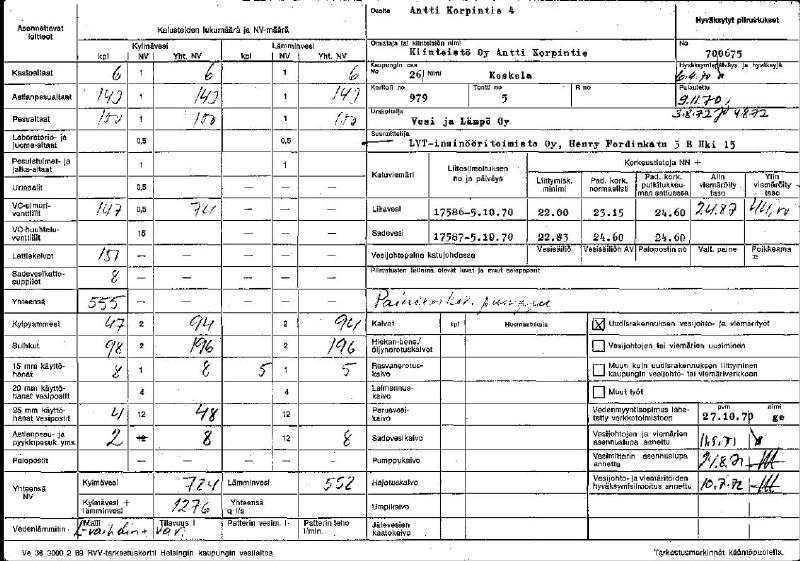 Asennettavat laitteet
Kalusteiden lukumäärä ja NV-määrä
Kylmävesi
Lämminvesi
kpl NV Yht. NV kpl NV Yht. NV
Kastoaltaat 6 1 6 1 6
Astianpesualtaat 143 1 143 1 143
Pesualtaat 150 1 150 1 150
Laboratorio- ja juoma-altaat 0,5 0,5
Pesuistuimet- ja jalka-altaat 1 1
Urinaalit 0,5 — — —
VC-elmeri-venttiilit 147 0,5 74 — — —
VC-huuhtelu-venttiilit 15 — — —
Lattiakaivot 151 — — — — —
Sadevesikatto-suppilot 8 — — — — —
Yhteensä 555 — — — — —
Kylpyammeet 47 2 94 2 94
Suihkut 98 2 196 2 196
15 mm käyttö-hanat 8 1 8 5 1 5
20 mm käyttö-hanat vesipostit 4 4
25 mm käyttö-hanat vesipostit 4 12 48 12
Astianpesu- ja pyykinpesuk. yms. 2 12 8 12 8
Palopostit — — — — —
Yhteensä NV
Kylmävesi 724 Lämminvesi 552
Kylmävesi + lämminvesi 1276 Yhteensä q l/s
Vedenlämmitin Malli Tilavuus l Patterin vesim. l Patterin teho l/min.
Ve 36 3000 2 69 RVV-tarkastuskortti Helsingin kaupungin vesilaitos
Osoite Antti Korpintie 4
Hyväksytyt piirustukset
Omistaja tai kiinteistön nimi
Kiinteistö Oy Antti Korpintie
No 700675
Kaupungin osa
No 26 Nimi Koskela
Hyväksymispäiväys ja hyväksyjä
Kortteli no 979 Tontti no 5 R no
Palautettu
9.11.70,
3.8.72 4.8.72
Urakoitsija
Vesi ja Lämpö Oy
Suunnittelija
LVT-insinööritoimisto Oy, Henry Fordinkatu 5 B Hki 15
Katuviemäri
Liitosilmoituksen no ja päiväys
Korkeustietoja NN +
Liittymisk. minimi
Pad. kork. normaalisti
Pad. kork. putkitukkeuman sattuessa
Alin viemäröity taso
Ylin viemäröity taso
Likavesi 17586-5.10.70 22.00 23.15 24.60 24.87
Sadevesi 17587-5.10.70 22.83 24.60 24.60
Vesijohtopaine katujohdossa
Vesisäiliö Vesisäiliön AV Palopostin no Vall. paine Poikkeama
Piirustusten liitteinä olevat luvat ja muut asiapaperit
Kaivot kpl Huomautuksia
Hiekan-bens./öljynerotuskaivot
Rasvanerotus-kaivo
Laimennus-kaivo
Perusvesi-kaivo
Sadevesikaivo
Pumppukaivo
Hajotuskaivo
Umpikaivo
Jätevesien kaatokaivo
X Uudisrakennuksen vesijohto- ja viemärityöt
Vesijohtojen tai viemärien uusiminen
Muun kuin uudisrakennuksen liittyminen kaupungin vesijohto- tai viemäriverkkoon
Muut työt
pvm nimi
Vedenmyyntisopimus lähetetty verkkotoimistoon 27.10.70 ge
Vesijohtojen ja viemärien asennuslupa annettu
Vesimittarin asennuslupa annettu 24.8.71
Vesijohto- ja viemäritöiden hyväksymisilmoitus annettu 10.7.72
Tarkastusmerkinnät kääntöpuolella.